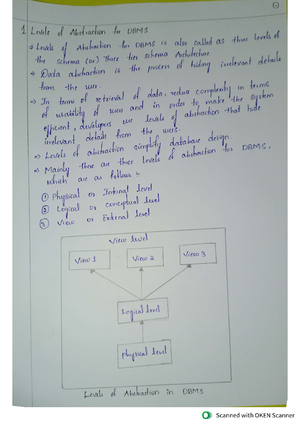 1 Levels of Abstraction for DBMS
→ Levels of Abstraction for DBMS is also called as three levels of
the schema (or) Three tier schema Architecture
→ Data abstraction is the process of hiding irrelevant details
from the user.
→ In term of retrieval of data, reduce complexity in terms
of usability of users and in order to make the system
efficient, developers use levels of abstraction that hide
irrelevant details from the users.
→ Levels of abstraction simplify database design.
→ Mainly there are three levels of abstraction for DBMS,
which are as follows :-
① Physical or Internal level
② Logical or conceptual level
③ View or External level
View level
View 1
View 2
View 3
Logical level
Physical level
Levels of Abstraction in DBMS
Scanned with OKEN Scanner